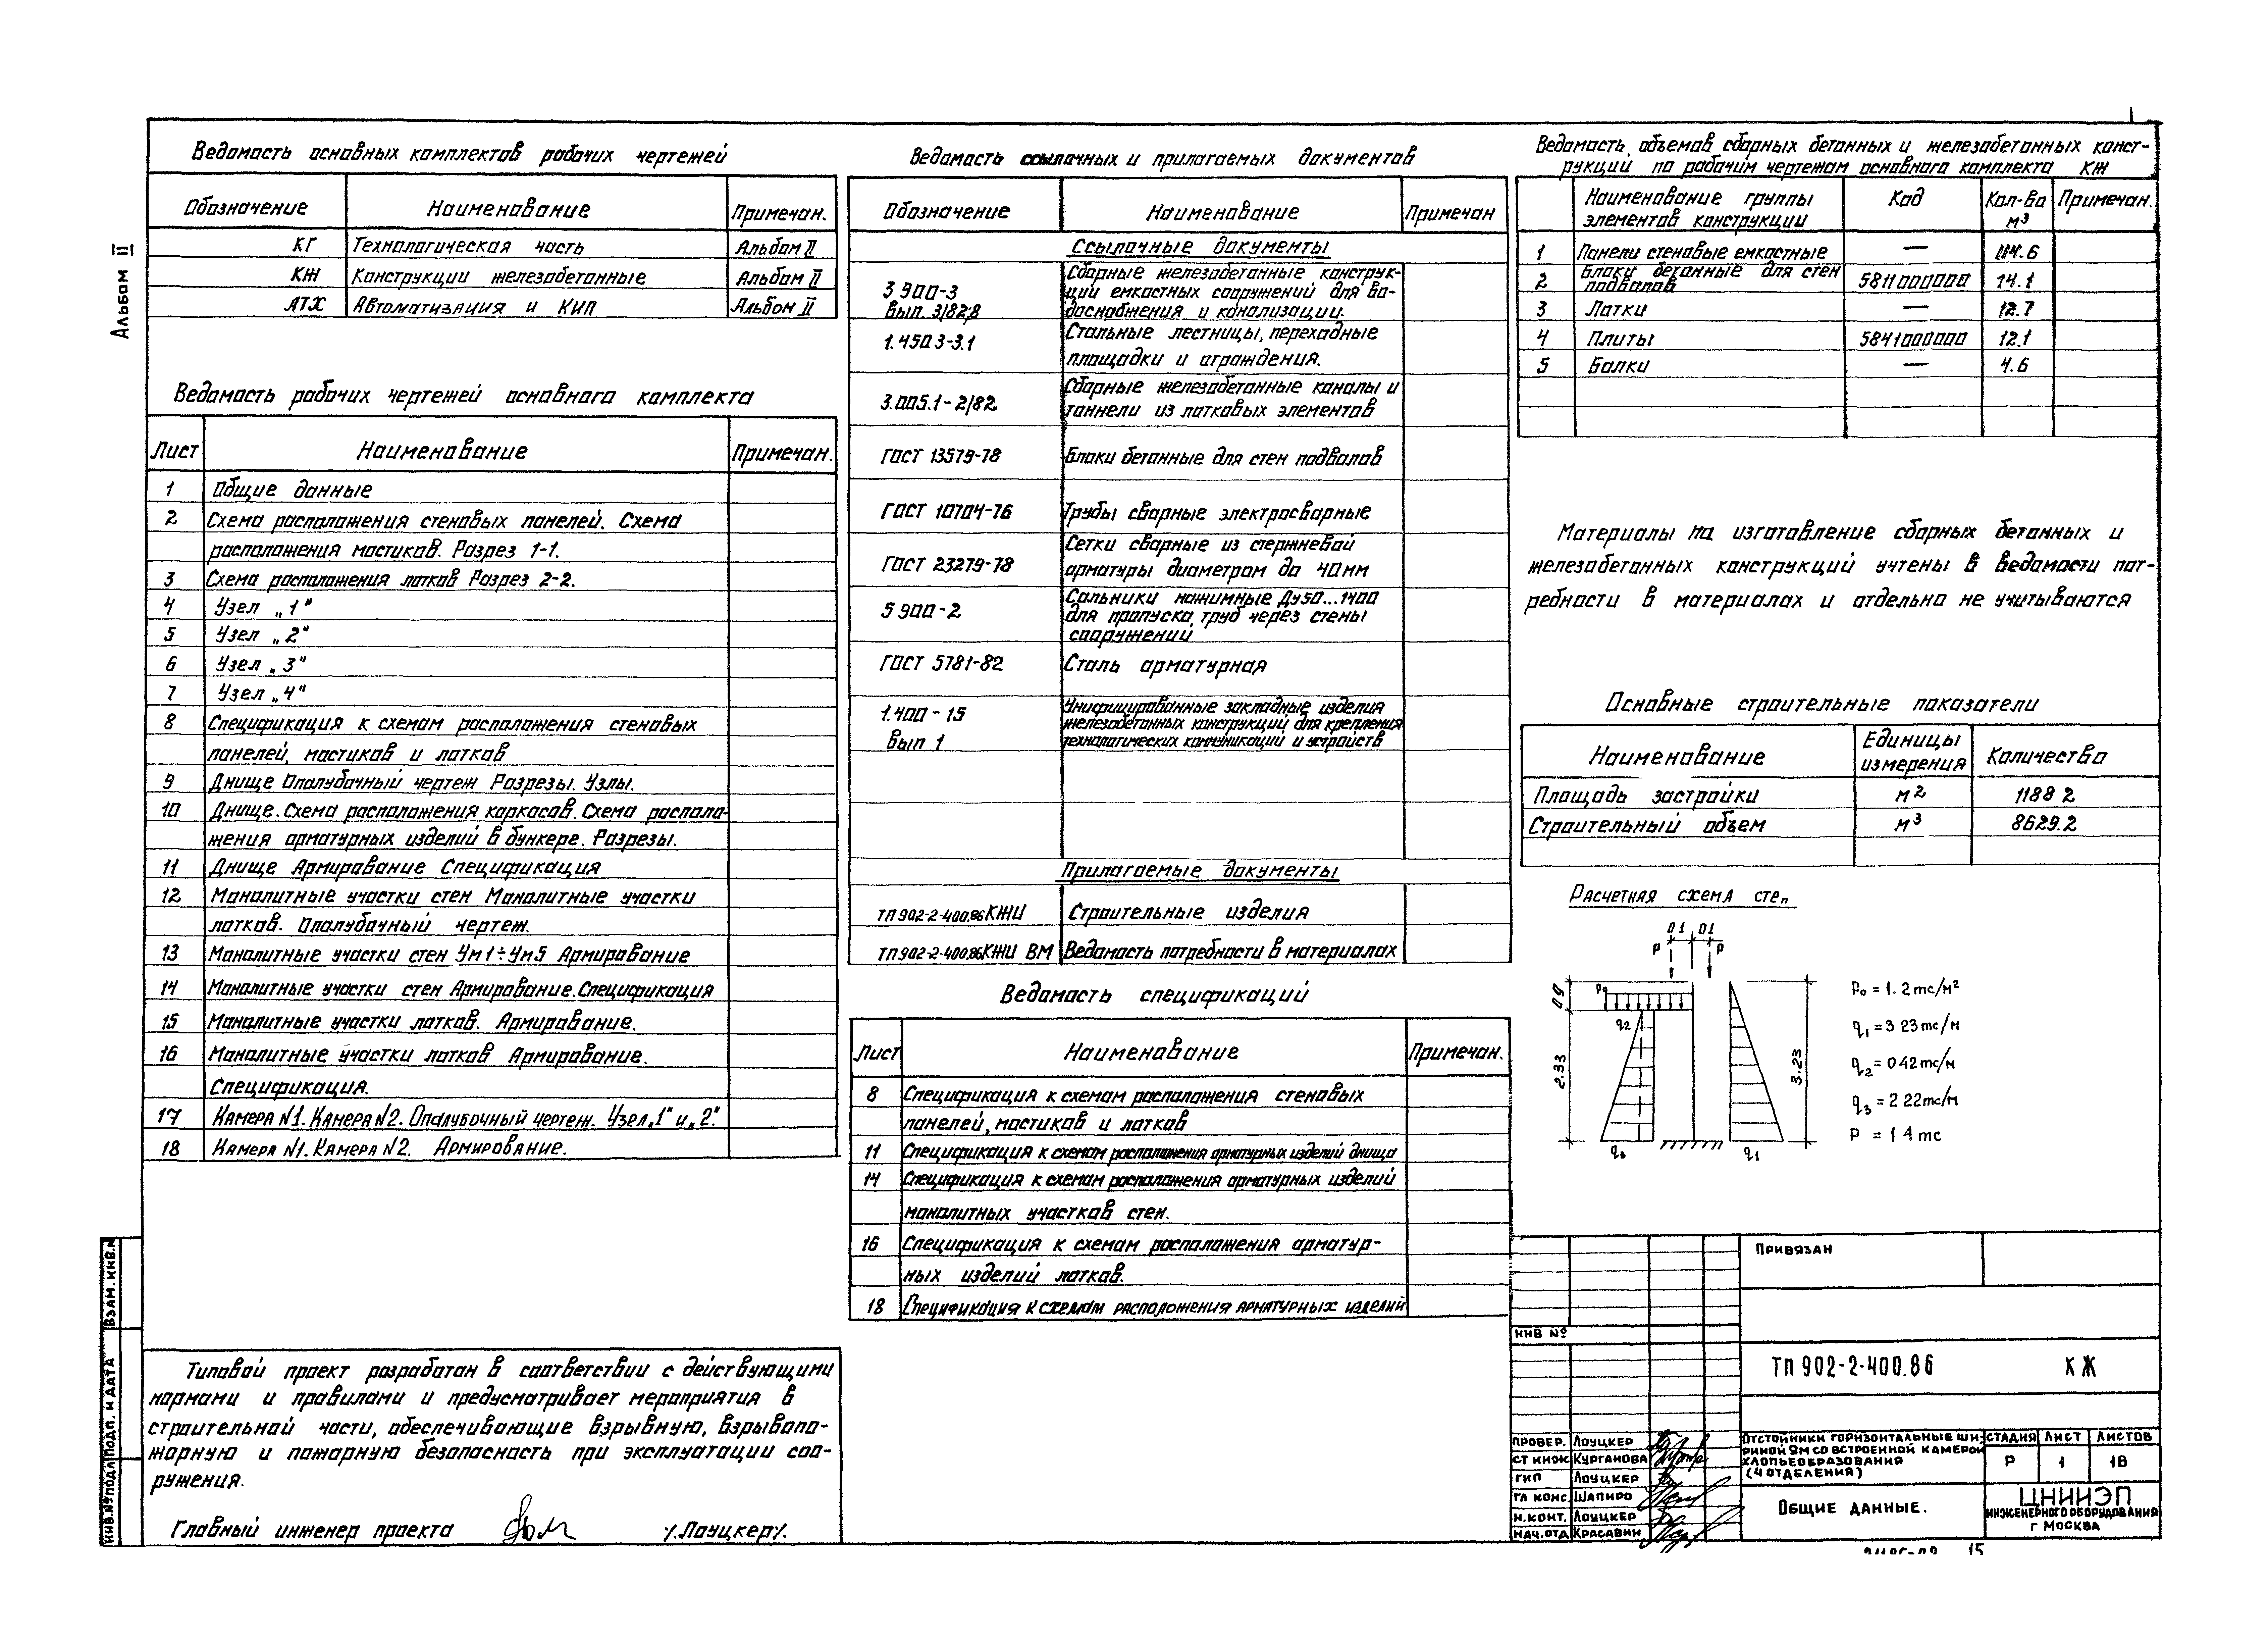 Альбом II
Ведомость основных комплектов рабочих чертежей
Обозначение Наименование Примечан.
КГ Технологическая часть Альбом II
КЖ Конструкции железобетонные Альбом II
АТХ Автоматизация и КИП Альбом II
Ведомость рабочих чертежей основного комплекта
Лист Наименование Примечан.
1 Общие данные
2 Схема расположения стеновых панелей. Схема
расположения мостиков. Разрез 1-1.
3 Схема расположения лотков Разрез 2-2.
4 Узел „1"
5 Узел „2"
6 Узел „3"
7 Узел „4"
8 Спецификация к схемам расположения стеновых
панелей, мостиков и лотков
9 Днище Опалубочный чертеж Разрезы. Узлы.
10 Днище. Схема расположения каркасов. Схема располо-
жения арматурных изделий в бункере. Разрезы.
11 Днище Армирование Спецификация
12 Монолитные участки стен Монолитные участки
лотков. Опалубочный чертеж.
13 Монолитные участки стен Ум1÷Ум5 Армирование
14 Монолитные участки стен Армирование. Спецификация
15 Монолитные участки лотков. Армирование.
16 Монолитные участки лотков Армирование.
Спецификация.
17 Камера N1. Камера N2. Опалубочный чертеж. Узел „1" и „2".
18 Камера N1. Камера N2. Армирование.
Типовой проект разработан в соответствии с действующими
нормами и правилами и предусматривает мероприятия в
строительной части, обеспечивающие взрывную, взрывопо-
жарную и пожарную безопасность при эксплуатации соо-
ружения.
Главный инженер проекта /.Лоуцкер/.
Ведомость ссылочных и прилагаемых документов
Обозначение Наименование Примечан
Ссылочные документы
3 900-3 Сборные железобетонные конструк-
ции емкостных сооружений для во-
Вып. 3/82;8 доснабжения и канализации.
1.450 3-3.1 Стальные лестницы, переходные
площадки и ограждения.
3.005.1-2/82 Сборные железобетонные каналы и
тоннели из лотковых элементов
ГОСТ 13579-78 Блоки бетонные для стен подвалов
ГОСТ 10704-76 Трубы сварные электросварные
ГОСТ 23279-78 Сетки сварные из стержневой
арматуры диаметром до 40мм
5 900-2 Сальники нажимные Ду50...1400
для пропуска труб через стены
сооружений
ГОСТ 5781-82 Сталь арматурная
1.400-15 Унифицированные закладные изделия
железобетонных конструкций для крепления
Вып 1 технологических коммуникаций и устройств
Прилагаемые документы
ТП 902-2-400.86 КЖИ Строительные изделия
ТП 902-2-400.86 КЖИ ВМ Ведомость потребности в материалах
Ведомость спецификаций
Лист Наименование Примечан.
8 Спецификация к схемам расположения стеновых
панелей, мостиков и лотков
11 Спецификация к схемам расположения арматурных изделий днища
14 Спецификация к схемам расположения арматурных изделий
монолитных участков стен.
16 Спецификация к схемам расположения арматур-
ных изделий лотков.
18 Спецификация к схемам расположения арматурных изделий
Ведомость объемов сборных бетонных и железобетонных конст-
рукций по рабочим чертежам основного комплекта КЖ
Наименование группы элементов конструкции Код Кол-во м³ Примечан.
1 Панели стеновые емкостные — 114.6
2 Блоки бетонные для стен подвалов 5811000000 14.1
3 Лотки — 12.7
4 Плиты 5841000000 12.1
5 Балки — 4.6
Материалы на изготовление сборных бетонных и
железобетонных конструкций учтены в ведомости пот-
ребности в материалах и отдельно не учитываются
Основные строительные показатели
Наименование Единицы измерения Количество
Площадь застройки м2 1188 2
Строительный объем м3 8629.2
Расчетная схема стен
0 1 0 1
Р Р
0 9 Р₀
q₂
2.33 3.23
q₁
P₀ = 1.2 тс/м²
q₁ = 3 23 тс/м
q₂ = 0 42 тс/м
q₃ = 2 22 тс/м
Р = 1 4 тс
Привязан
ИНВ №
ТП 902-2-400.86 КЖ
Провер. Лоуцкер
Ст инж Курганова
ГИП Лоуцкер
Гл конс. Шапиро
Н.конт. Лоуцкер
Нач.отд Красавин
Отстойники горизонтальные ши-
риной 9м со встроенной камерой
хлопьеобразования
(4 отделения)
Стадия Лист Листов
Р 1 18
Общие данные.
ЦНИИЭП
инженерного оборудования
г Москва
ВЗАМ. ИНВ.№
ПОДП. И ДАТА
ИНВ.№ ПОДЛ
15